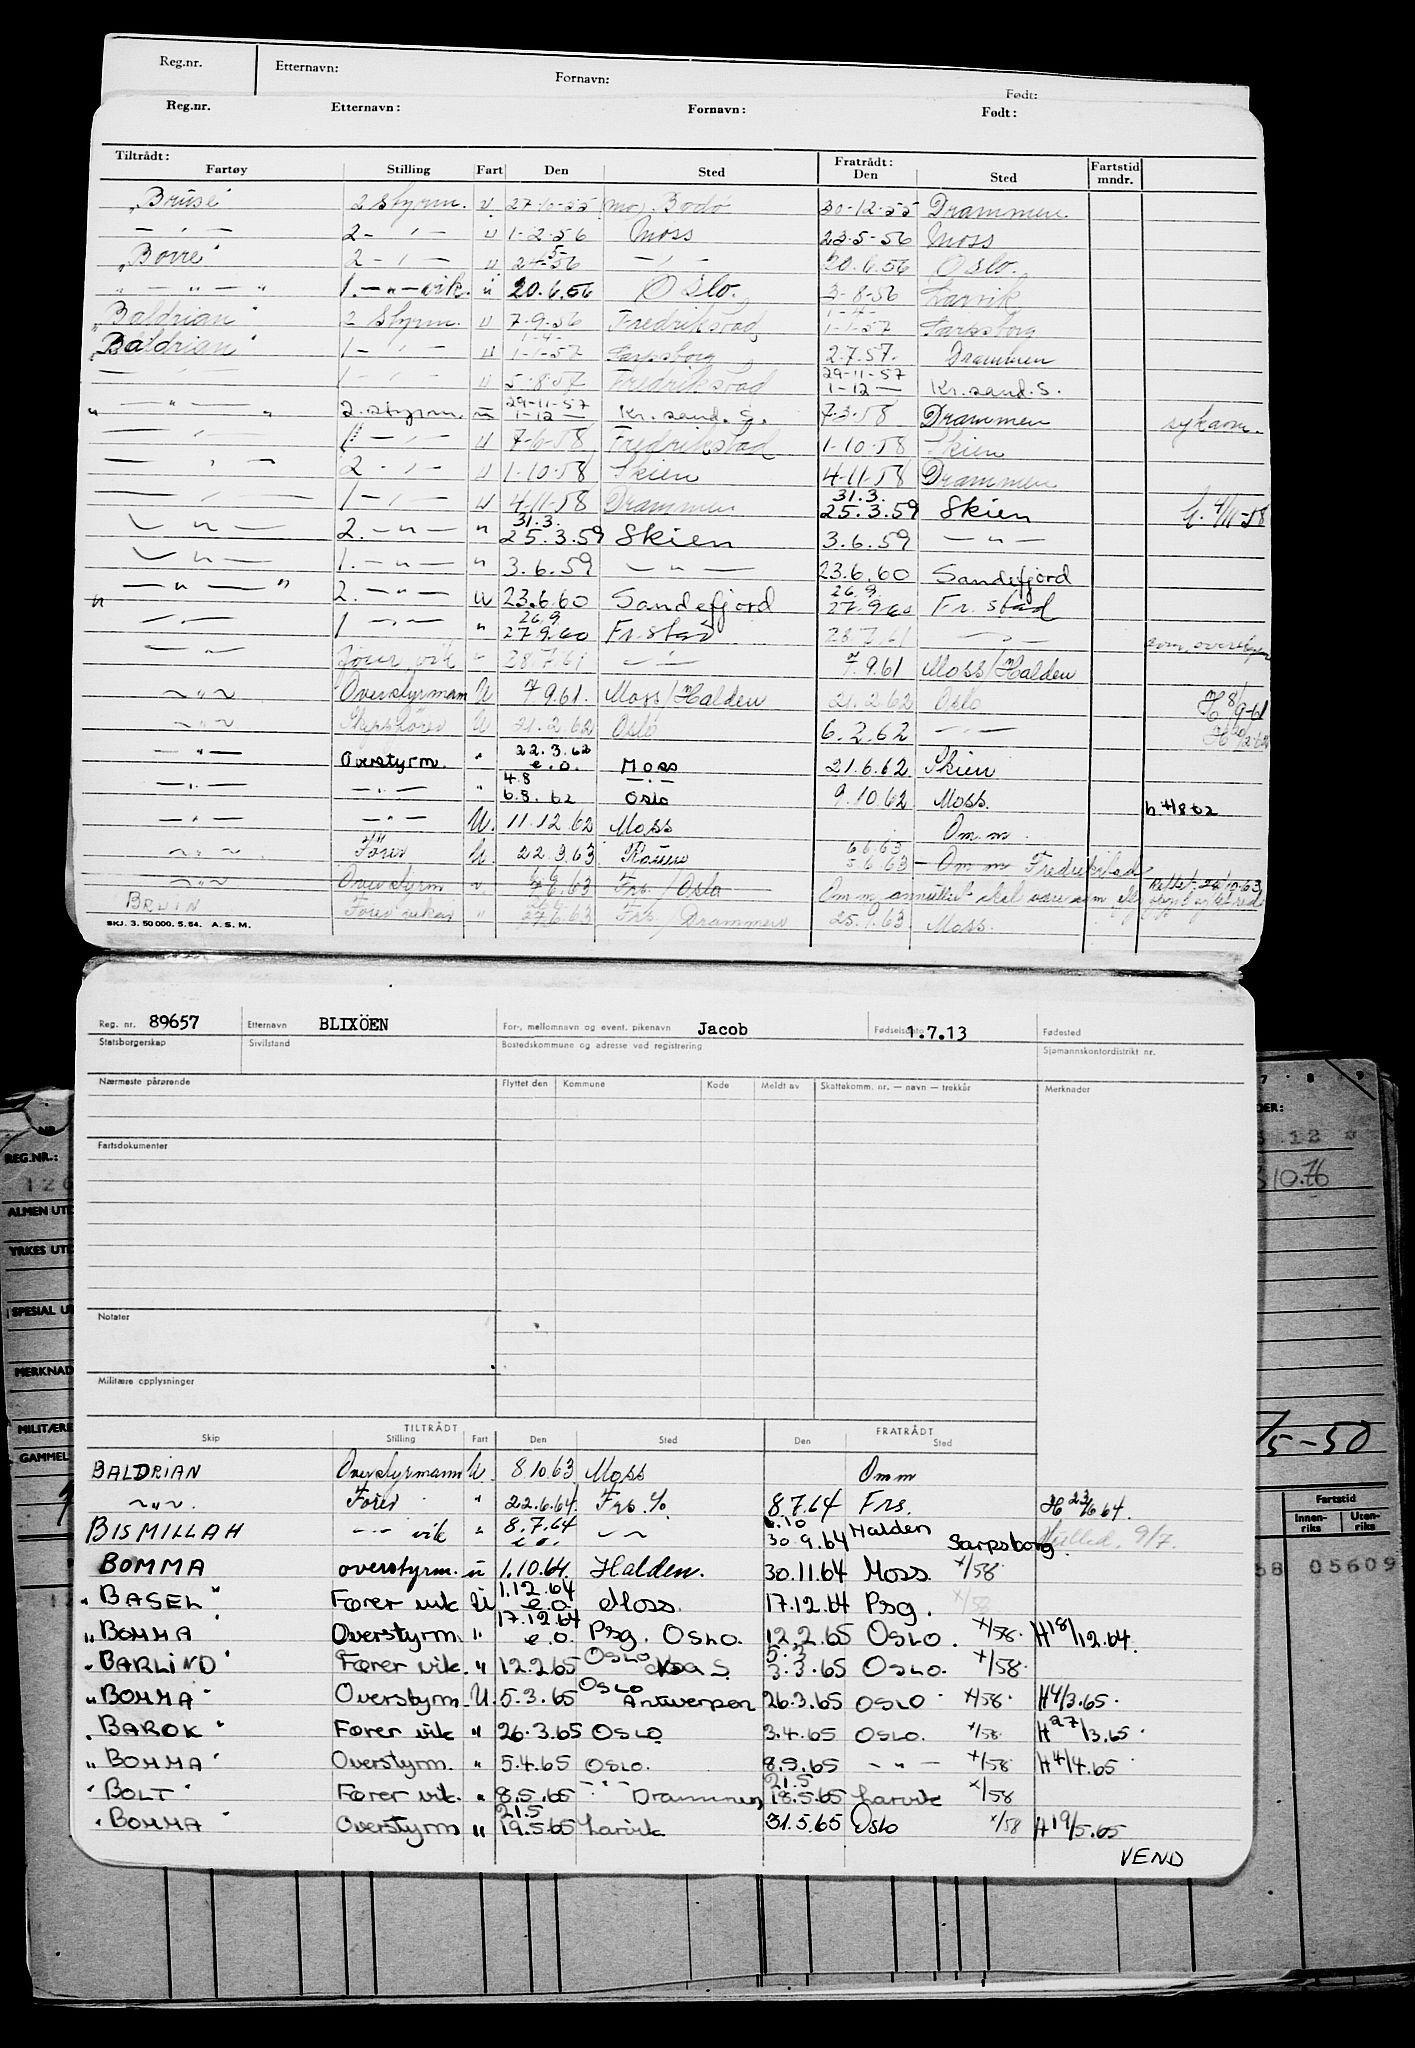 Reg.nr. Etternavn: Fornavn: Født:
Reg.nr. Etternavn: Fornavn: Født:
Tiltrådt: Fratrådt: Fartstid
Fartøy Stilling Fart Den Sted Den Sted mndr.
"Bruse" 2 styrm. u 27-10-55 Bodø 30-12-55 Drammen
— " — 2 - " - u 1-2-56 Moss 23-5-56 Moss
"Borre" 2 - " - u 24-5-56 — " — 20.6.56 Oslo.
" — " — " 1. — " — vik. u 20.6.56 Oslo. 3-8-56 Larvik
"Baldrian" 2 styrm. u 7-9-56 Fredrikstad 1-4- 1-1-57 Sarpsborg
"Baldrian" 1 - " - u 1-4- 1-1-57 Sarpsborg 2.7.57. Drammen
— " — 1 - " - u 5-8-57 Fredrikstad 29-11-57 1-12 — Kr.sand.S.
" — " — " 2. styrm. u 29-11-57 1-12 — Kr.sand.S. 7-3-58 Drammen
— " — 1 - " - u 7-6-58 Fredrikstad 1-10-58 Skien
— " — 2 - " - u 1-10-58 Skien 4-11-58 Drammen
— " — 1 - " - u 4-11-58 Drammen 31.3. 25.3.59 Skien h. 4/11-58
— " — 2. — " — " 31.3. 25.3.59 Skien 3.6.59 — " —
— " — 1. — " — " 3.6.59 — " — 23.6.60 Sandefjord
" — " — " 2. — " — u 23.6.60 Sandefjord 26.9. 27.9.60 Fr.stad
— " — 1 — " — " 26.9 27.9.60 Fr.stad 28.7.61 — " —
— " — Fører vik " 28.7.61 — " — 7.9.61 Moss/Halden
~ " ~ Overstyrmann U 7.9.61. Moss/Halden 21.2.62 Oslo H 8/9-61
~ " ~ Skipsfører U 21.2.62 Oslo 6.2.62 — " —
— " — Overstyrm. " 22.3.62 e.o. Moss 21.6.62 Skien
— " — — " — " 4.8 6.8.62 — " — Oslo 9.10.62 Moss. h. 4/8 62
— " — — " — U. 11.12.62 Moss Om.m.
~ " ~ Fører U. 22.3.63 6.6.63 5.6.63 — Om m Fredrikstad
~ " ~ Overstyrm u. 7.6.63 Frs./Oslo Om m annullert skal være som Rettet 24/10-63
BRUIN Fører vikar " 27.6.63 Frs/Drammen 25.9.63 Moss.
SKJ. 3. 50 000. 5. 54. A. S. M.
Reg. nr. 89657 Etternavn BLIXÖEN For-, mellomnavn og event. pikenavn Jacob Fødselsdato 1.7.13 Fødested
Statsborgerskap Sivilstand Bostedskommune og adresse ved registrering Sjømannskontordistrikt nr.
Nærmeste pårørende Flyttet den Kommune Kode Meldt av Skattekomm. nr. — navn — trekkår Merknader
Fartsdokumenter
Notater
Militære opplysninger
TILTRÅDT FRATRÅDT
Skip Stilling Fart Den Sted Den Sted
BALDRIAN Overstyrmann U. 8.10.63 Moss Om m
~ " ~. Fører " 22.6.64. Frs. 8.7.64 Frs. H 23/6 64
BISMILLAH — " — vik " 8.7.64 e.o. ~ ~ 6.10 30.9.64 Halden Sarpsborg. 9/7.
BOMMA overstyrm. u 1.10.64. Halden. 30.11.64 Moss x/58
"BASEL" Fører vik U 1.12.64 e.o. Moss. 17.12.64 Psg. x/58
"BOMMA" Overstyrm. " 17.12.64 e.o. Psg. OSLO. 12.2.65 OSLO. x/58. H 18/12.64.
"BARLIND" Fører vik. " 12.2.65 OSLO 5.3 3.3.65 OSLO. x/58.
"BOMMA" Overstyrm. U. 5.3.65 OSLO Antwerpen 26.3.65 OSLO x/58. H 4/3.65.
"BAROK" Fører vik " 26.3.65 OSLO 3.4.65 OSLO. x/58. H 27/3.65.
"BOMMA" Overstyrm. " 5.4.65 OSLO. 8.5.65 — " — x/58. H 4/4.65
"BOLT" Fører vik. " 8.5.65 — " — Drammen 21.5 18.5.65 Larvik x/58
"BOMMA" Overstyrm " 21.5 19.5.65 Larvik 31.5.65 Oslo x/58 H 19/5.65
VEND
REG.NR.:
ALMEN UTD
YRKES UTD
SPECIAL UT
MERKNAD
MILITÆRE
GAMMEL
7 8 9
5 12
10.76
/5-50
Fartstid
Innen-riks Uten-riks
58 05609